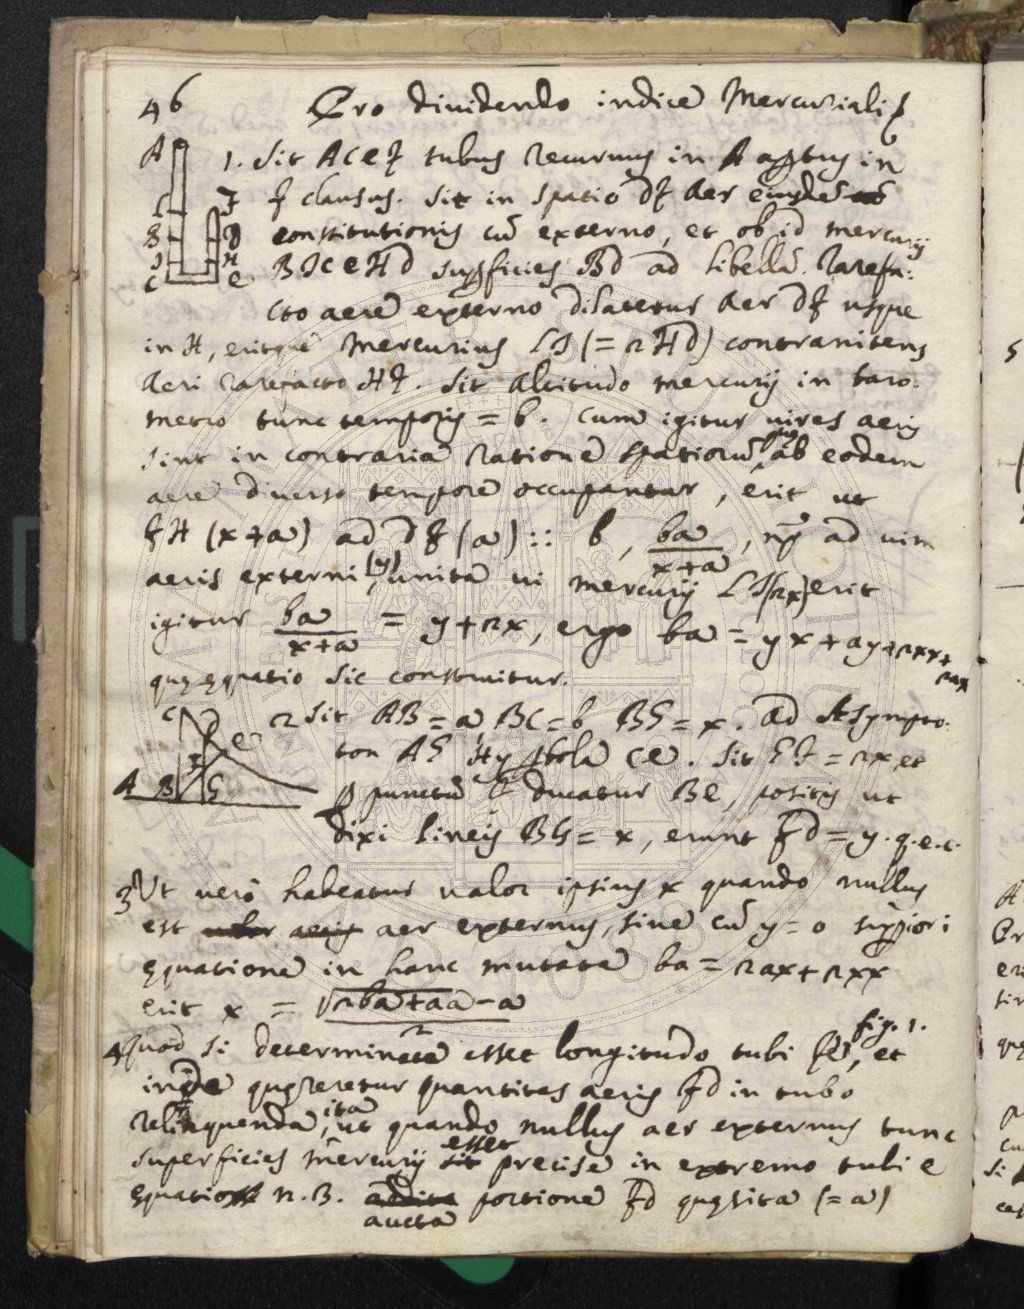 46 Pro dividendo indice Mercuriali
A 1. Sit ACEF tubus recurvus in A aptus in
F clausus. Sit in spatio DF aer eiusdē
constitutionis cū externo, et ob id mercurij
BICEHD superficies BD ad libellā. Rarefa-
cto aere externo dilatetur aer DF usque
in H, eritque Mercurius LI (= 2HD) contranitens
aeri rarefacto HF. Sit altitudo mercurij in baro-
metro tunc temporis = b. Cum igitur vires aeris
sint in contraria ratione spatiorū quae ab eodem
aere diverso tempore occupantur, erit ut
FH (x+a) ad DF (a) :: b, ba/x+a, ad vim
aeris externi (y) unita vi mercurij LI (2x) erit
igitur ba/x+a = y+2x, ergo ba = yx + ay + 2xx + 2ax
quae aequatio sic construitur.
2 Sit AB = a, BC = b BG = x. ad Asympto-
ton AG Hyperbola CE. Sit GF = 2x, et
per punctū ducatur BE, positis ut
dixi lineis BG = x, erunt FD = y. q.e.c.
3 Ut vero habeatur valor ipsius x quando nullus
est aer externus, sive cū y = 0 superiori
aequatione in hanc mutata ba = 2ax + 2xx
erit x = √2ba+aa - a / 2
4 Quod si determinata esset longitudo tubi FE, fig. 1. et
inde quaereretur quantitas aeris FD in tubo
relinquenda, ita ut quando nullus aer externus tunc
superficies mercurij esset precise in extremo tubi E
aequatio n. 3. aucta portione FD quaesita (= a)